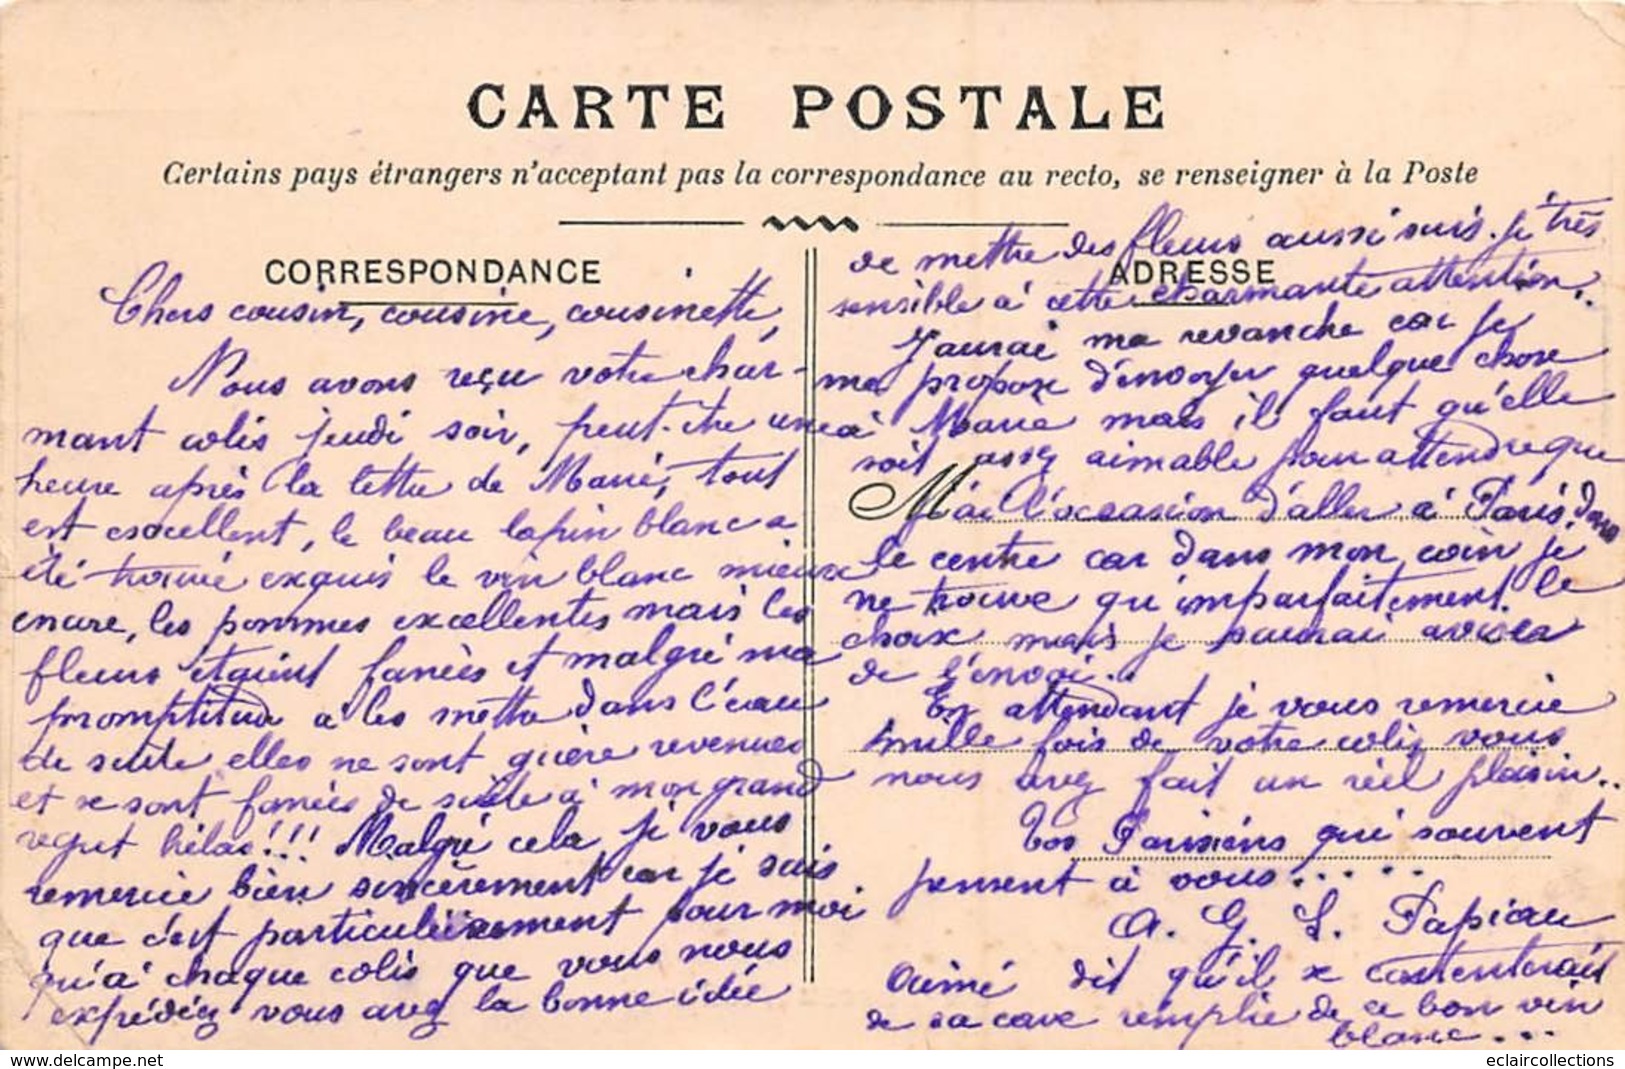 CARTE POSTALE
Certains pays étrangers n'acceptant pas la correspondance au recto, se renseigner à la Poste
CORRESPONDANCE
Chers cousin, cousine, cousinette,
Nous avons reçu votre char-
mant colis jeudi soir, peut-être une
heure après la lettre de Marie, tout
est excellent, le beau lapin blanc a
été trouvé exquis le vin blanc mieux
encore, les pommes excellentes mais les
fleurs étaient fanées et malgré ma
promptitude à les mettre dans l'eau
de suite elles ne sont guère revenues
et se sont fanées de suite à mon grand
regret hélas!!! Malgré cela je vous
remercie bien sincèrement car je sais
que c'est particulièrement pour moi
qu'à chaque colis que vous nous
expédiez vous avez la bonne idée
ADRESSE
de mettre des fleurs aussi suis-je très
sensible à cette charmante attention..
J'aurai ma revanche car je
me propose d'envoyer quelque chose
à Marie mais il faut qu'elle
soit assez aimable pour attendre que
j'ai l'occasion d'aller à Paris, dans
le centre car dans mon coin je
ne trouve qu'imparfaitement le
choix mais je pourrai
de l'envoi..
En attendant je vous remercie
mille fois de votre colis vous
nous avez fait un réel plaisir..
Vos Parisiens qui souvent
pensent à vous.....
A. G. L. Papiau
Aimé dit qu'il se contenterait
de sa cave remplie de ce bon vin
blanc...
delcampe.net
eclaircollections